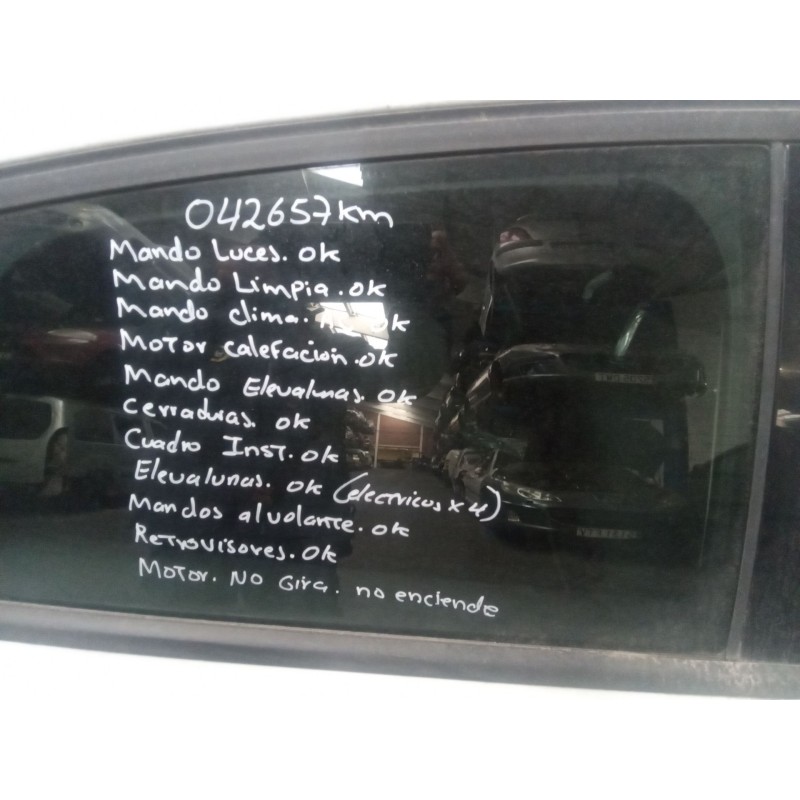 042657km
Mando Luces. ok
Mando Limpia. ok
Mando clima. ok
Motor calefacion. ok
Mando Elevalunas. ok
Cerraduras. ok
Cuadro Inst. ok
Elevalunas. ok (electricos x 4)
Mandos al volante. ok
Retrovisores. ok
Motor. No Gira. no enciende